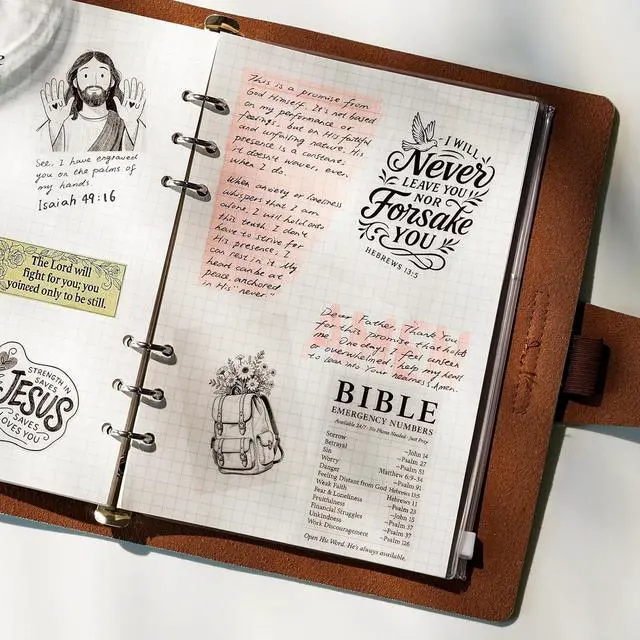 See, I have engraved
you on the palms of
my hands.
Isaiah 49:16
The Lord will
fight for you; you
yoineed only to be still.
STRENGTH IN
SAVES
JESUS
SAVES
LOVES YOU
This is a promise from
God Himself. It's not based
on my performance or
feelings, but on His faithful
and unfailing nature. His
presence is a constant;
it doesn't waver, even
when I do.
When anxiety or loneliness
whispers that I am
alone, I will hold onto
this truth. I don't
have to strive for
His presence, I
can rest in it. My
heart can be at
peace, anchored
in His "never"
I WILL
Never
LEAVE YOU
NOR
Forsake
YOU
HEBREWS 13:5
Dear Father, Thank You
for this promise that holds
me. One day I feel unseen
or overwhelmed, help my heart
to lean into Your nearness. Amen.
BIBLE
EMERGENCY NUMBERS
Available 24/7 · No Phone Needed · Just Pray
Sorrow ~John 14
Betrayal ~Psalm 27
Sin ~Psalm 51
Worry Matthew 6:9-34
Danger ~Psalm 91
Feeling Distant from God Hebrews 135
Weak Faith Hebrews 11
Fear & Loneliness ~Psalm 23
Fruitfulness ~John 15
Financial Struggles ~Psalm 37
Unkindness ~Psalm 37
Work Discouragement ~Psalm 126
Open His Word. He's always available.